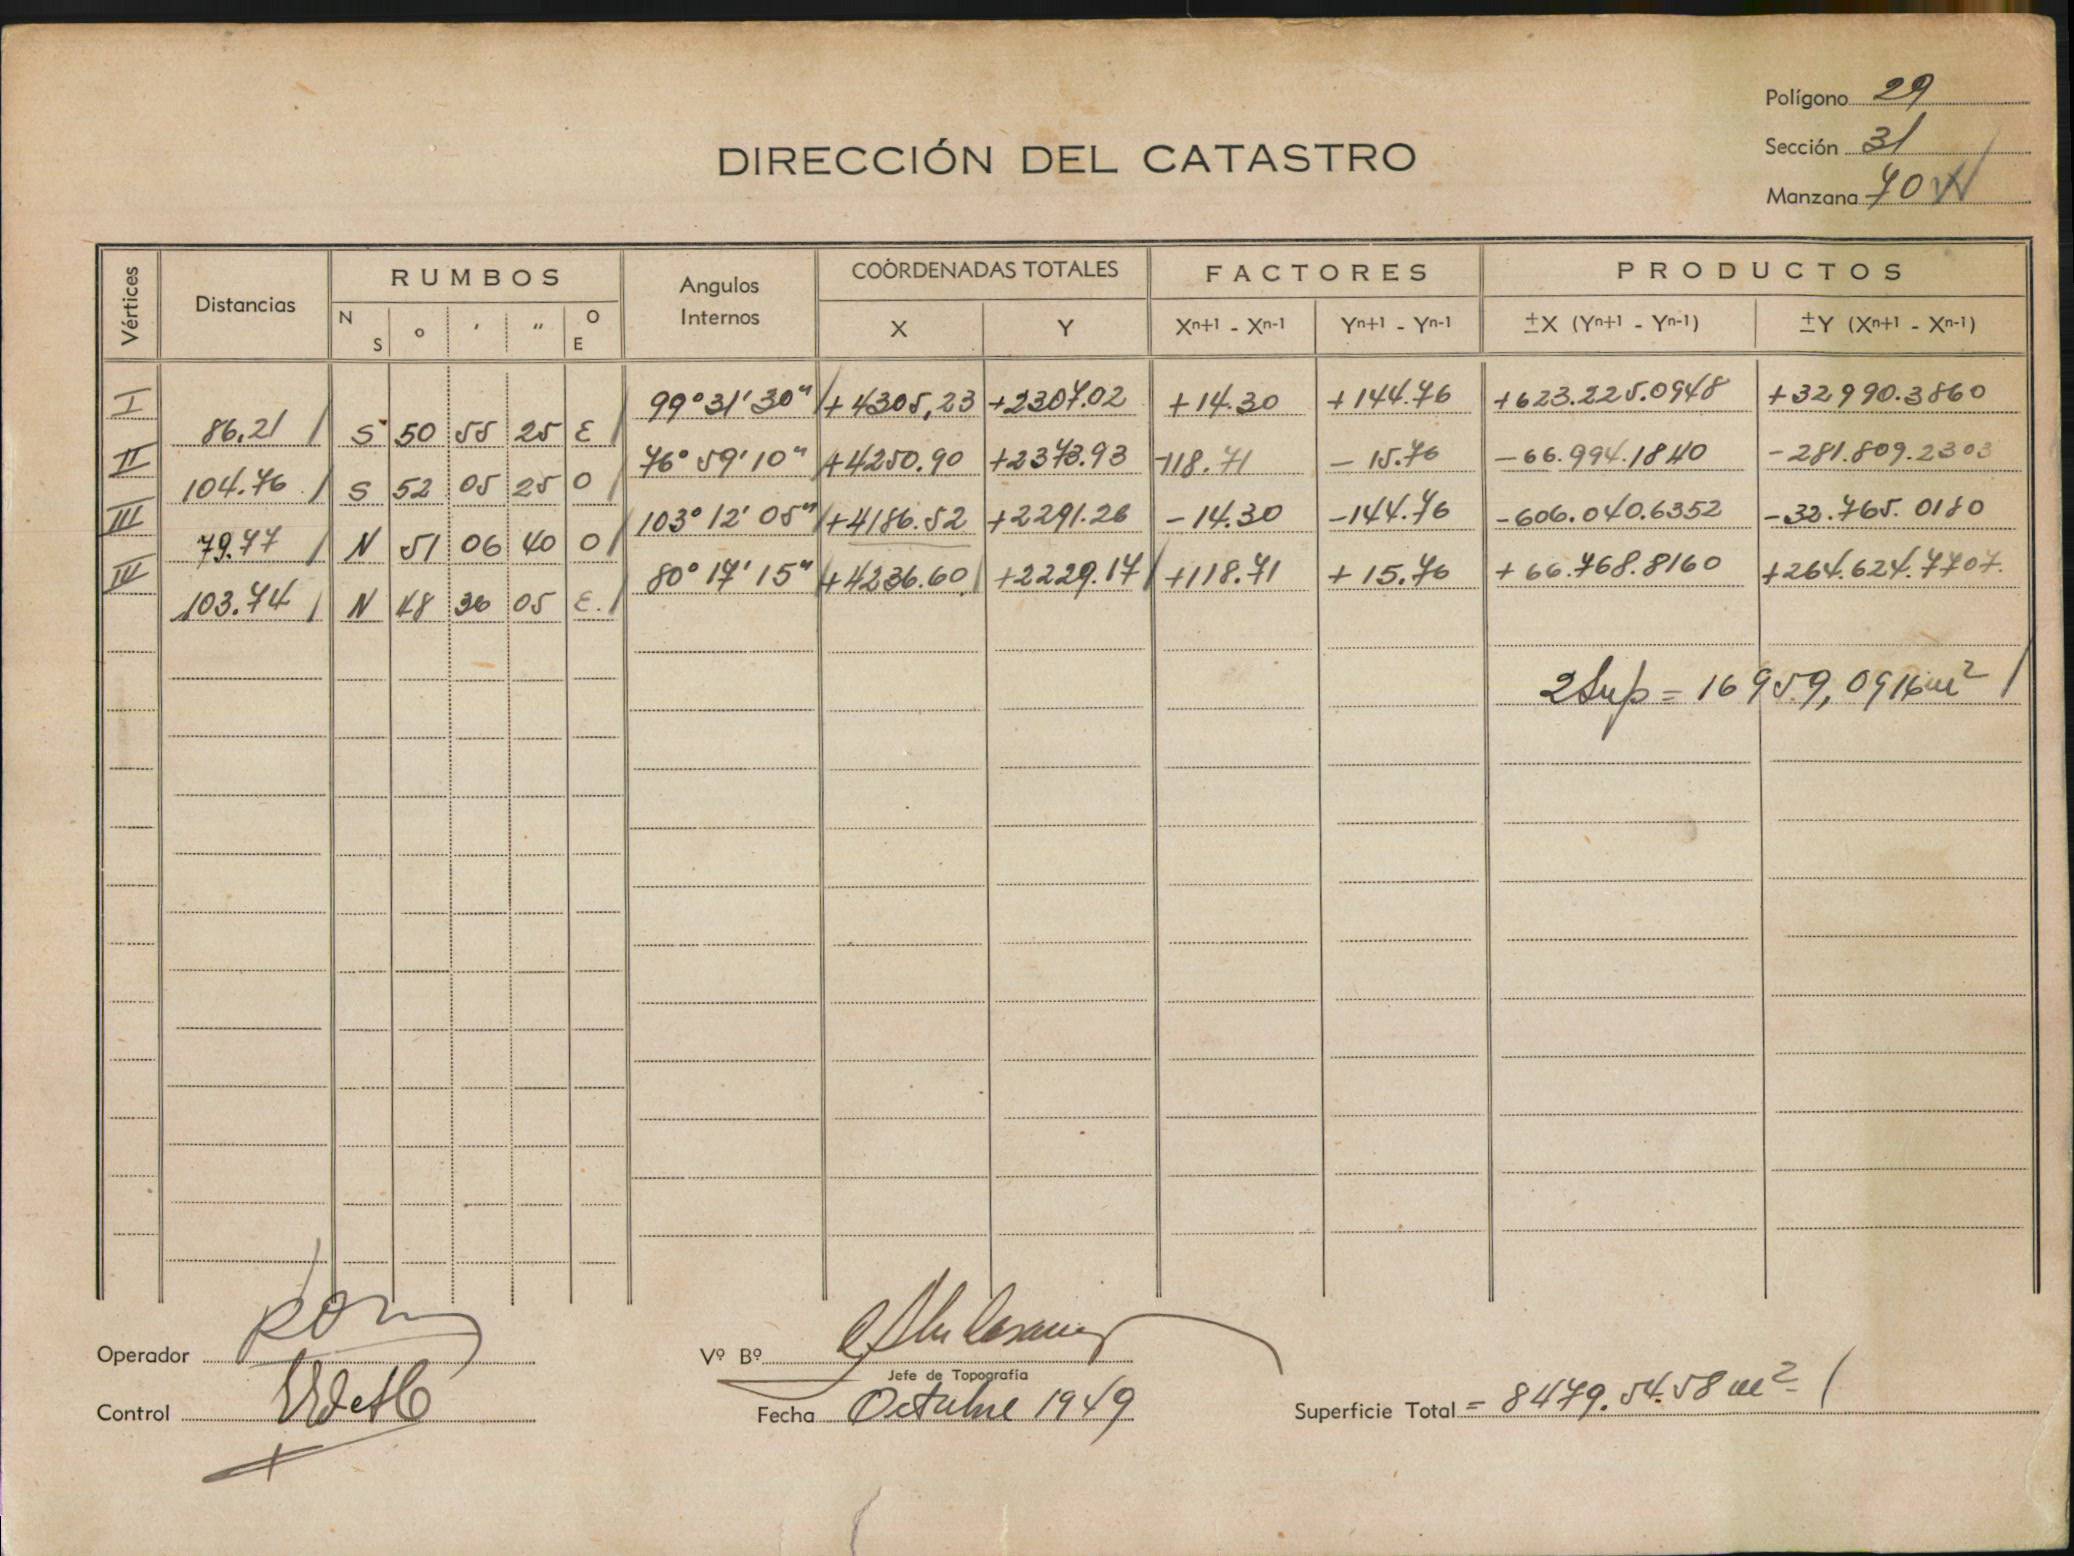 Polígono 29
Sección 31
Manzana 70
DIRECCIÓN DEL CATASTRO
Vértices Distancias RUMBOS Angulos Internos COÓRDENADAS TOTALES FACTORES PRODUCTOS
N S o ' " O E X Y Xn+1 - Xn-1 Yn+1 - Yn-1 ±X (Yn+1 - Yn-1) ±Y (Xn+1 - Xn-1)
I 99° 31' 30" +4305,23 +2307.02 +14.30 +144.76 +623.225.0948 +32990.3860
86.21 S 50 55 25 E
II 76° 59' 10" +4250.90 +2373.93 -118.71 -15.76 -66.994.1840 -281.809.2303
104.76 S 52 05 25 O
III 103° 12' 05" +4186.52 +2291.26 -14.30 -144.76 -606.040.6352 -32.765.0180
79.77 N 51 06 40 O
IV 80° 17' 15" +4236.60 +2229.17 +118.71 +15.76 +66.768.8160 +264.624.7707
103.74 N 48 36 05 E.
2Sup = 16959,0916 m²
Operador
Vº Bº
Jefe de Topografía
Control
Fecha Octubre 1949
Superficie Total = 8479.54.58 m²